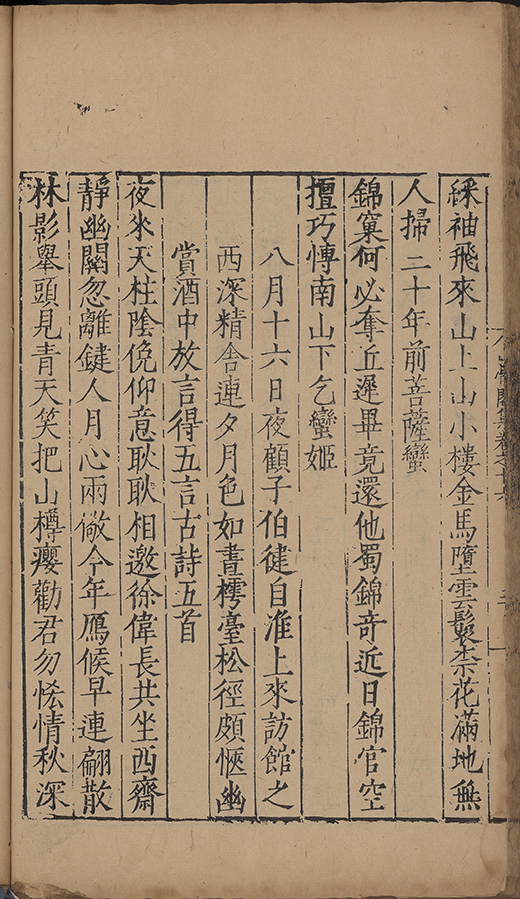 綵袖飛來山上山小樓金馬墮雲鬟柰花滿地無
人掃二十年前菩薩蠻
錦窠何必奪丘遲畢竟還他蜀錦奇近日錦官空
擅巧傳南山下乞蠻姬
八月十六日夜顧子伯健自淮上來訪館之
西深精舍連夕月色如晝樗臺松徑頗愜幽
賞酒中放言得五言古詩五首
夜氷天柱陰俛仰意耿耿相邀徐偉長共坐西齋
靜幽關忽離鍵人月心兩儆今年鴈候早連翩散
林影舉頭見青天笑把山樽癭勸君勿恡情秋深